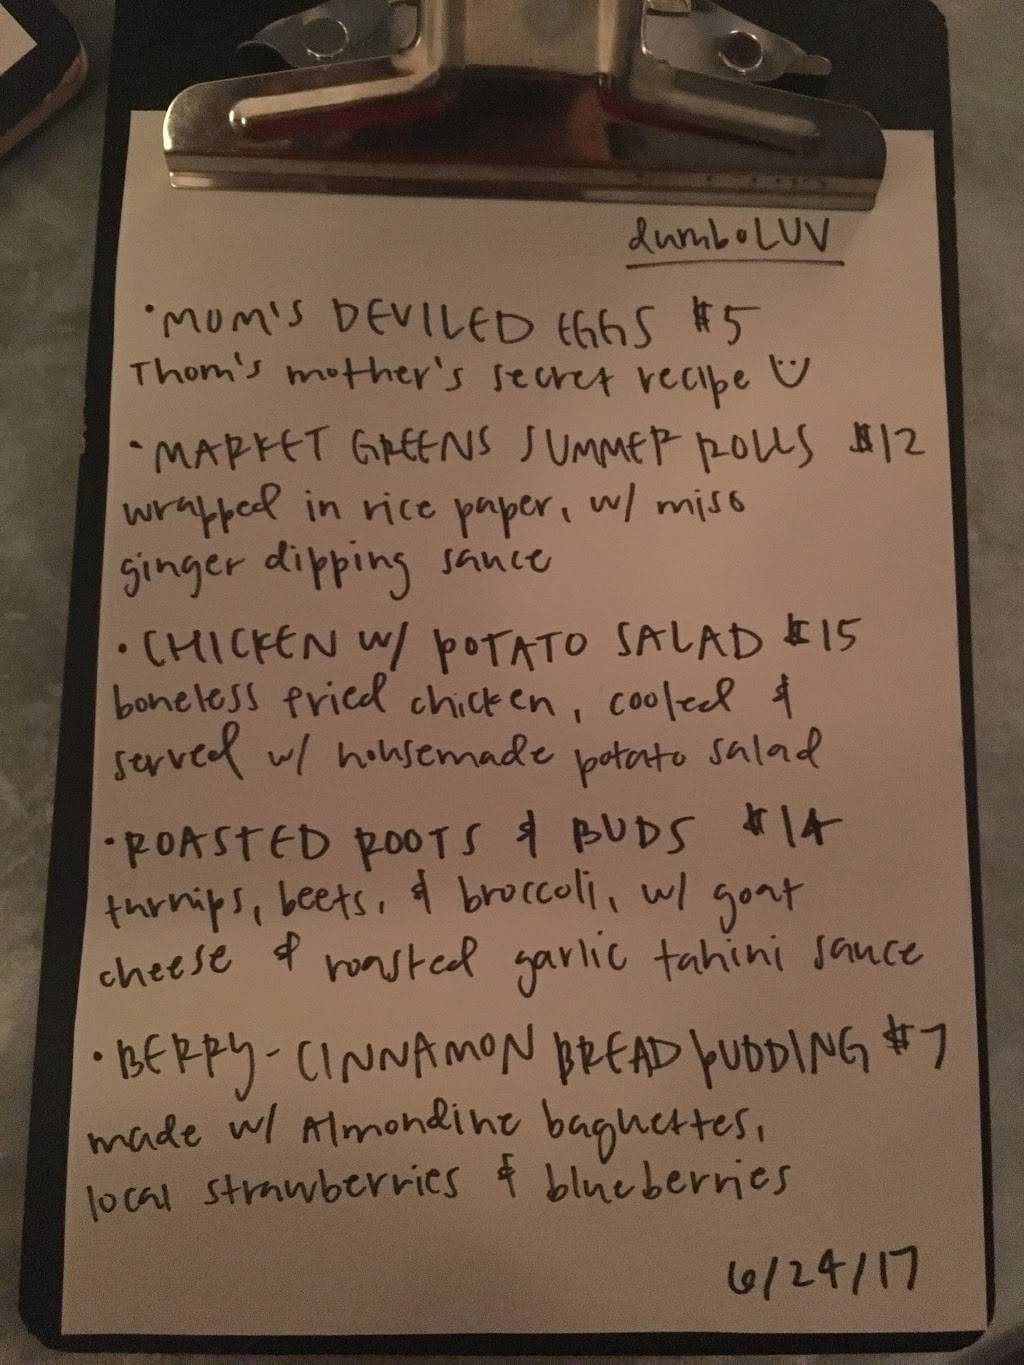 dumboLUV
• MOM'S DEVILED EGGS $5
Thom's mother's secret recipe
• MARKET GREENS SUMMER ROLLS $12
wrapped in rice paper, w/ miso
ginger dipping sauce
• CHICKEN W/ POTATO SALAD $15
boneless fried chicken, cooled &
served w/ housemade potato salad
• ROASTED ROOTS & BUDS $14
turnips, beets, & broccoli, w/ goat
cheese & roasted garlic tahini sauce
• BERRY-CINNAMON BREAD PUDDING $7
made w/ Almondine baguettes,
local strawberries & blueberries
6/24/17